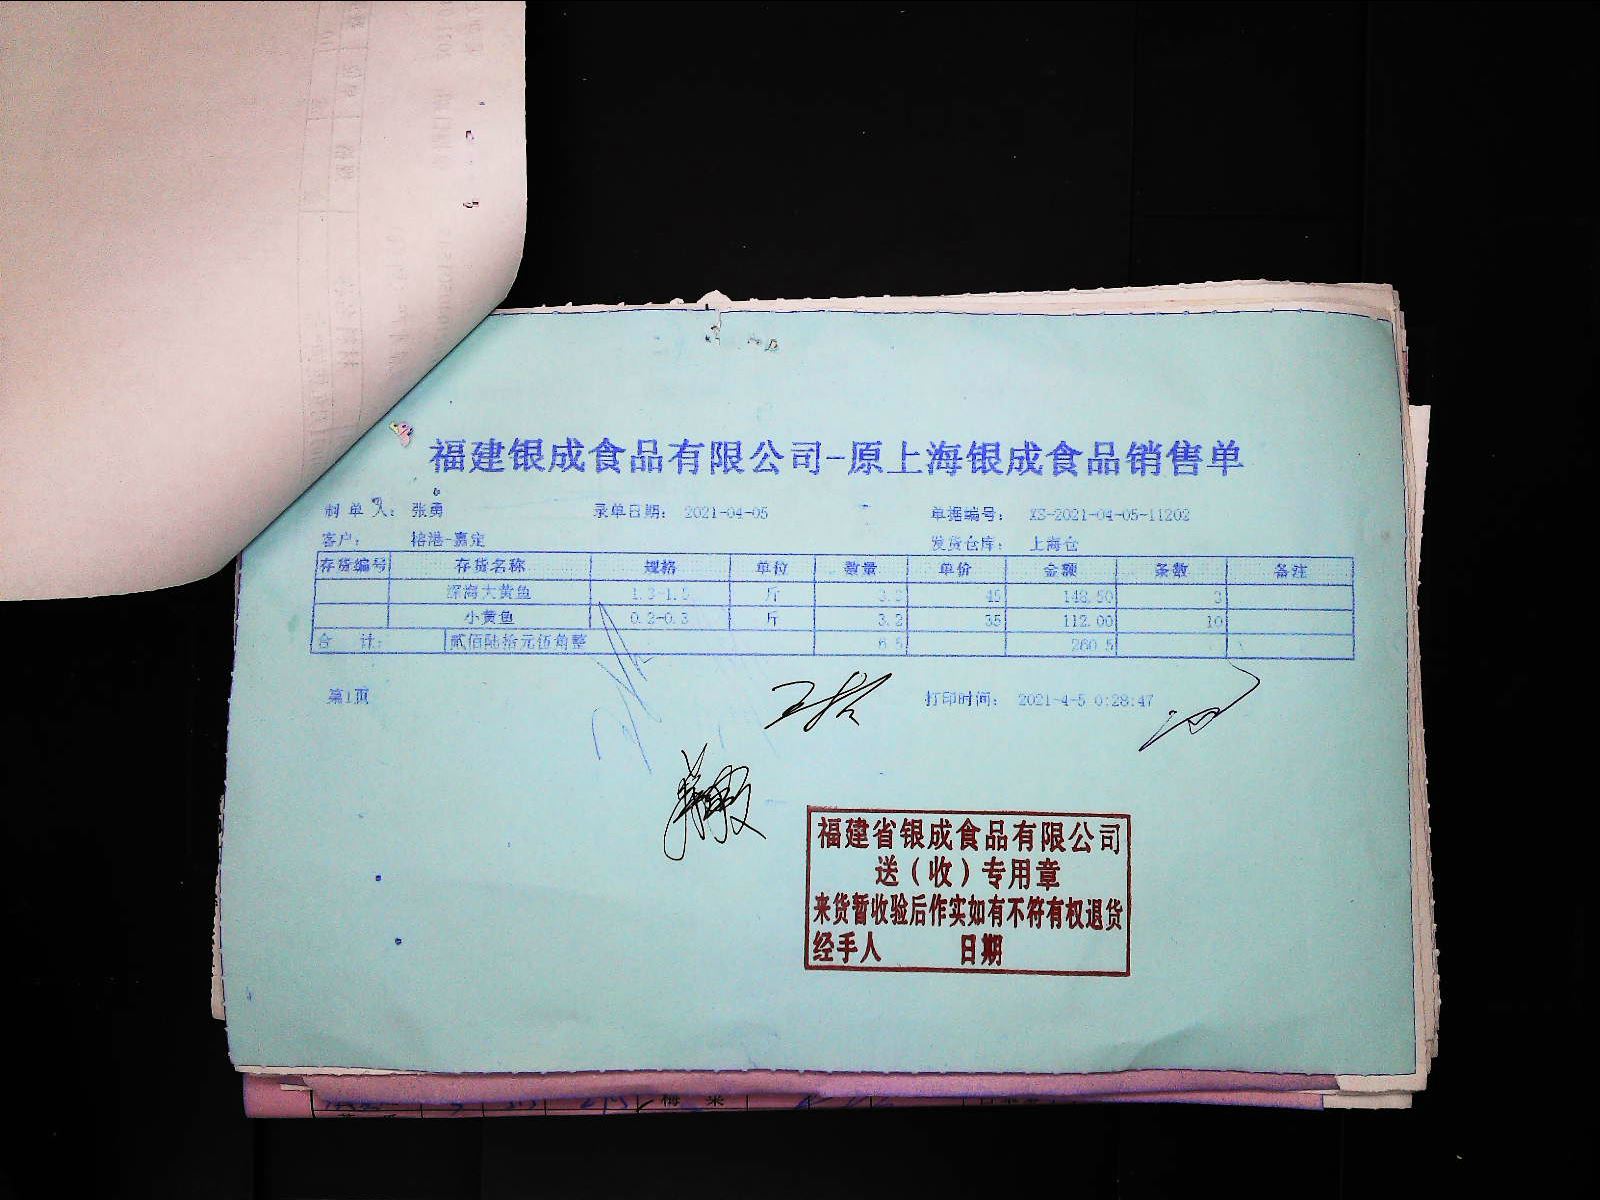 福建银成食品有限公司-原上海银成食品销售单
制单人: 张勇 录单日期: 2021-04-05 单据编号: XS-2021-04-05-11202
客户: 榕港-嘉定 发货仓库: 上海仓
存货编号 存货名称 规格 单位 数量 单价 金额 条数 备注
深海大黄鱼 斤 45 148.50 3
小黄鱼 0.2-0.3 斤 3.2 35 112.00 10
合 计: 贰佰陆拾元伍角整 6.5 260.5
第1页 打印时间: 2021-4-5 0:28:47
福建省银成食品有限公司
送(收)专用章
来货暂收验后作实如有不符有权退货
经手人 日期